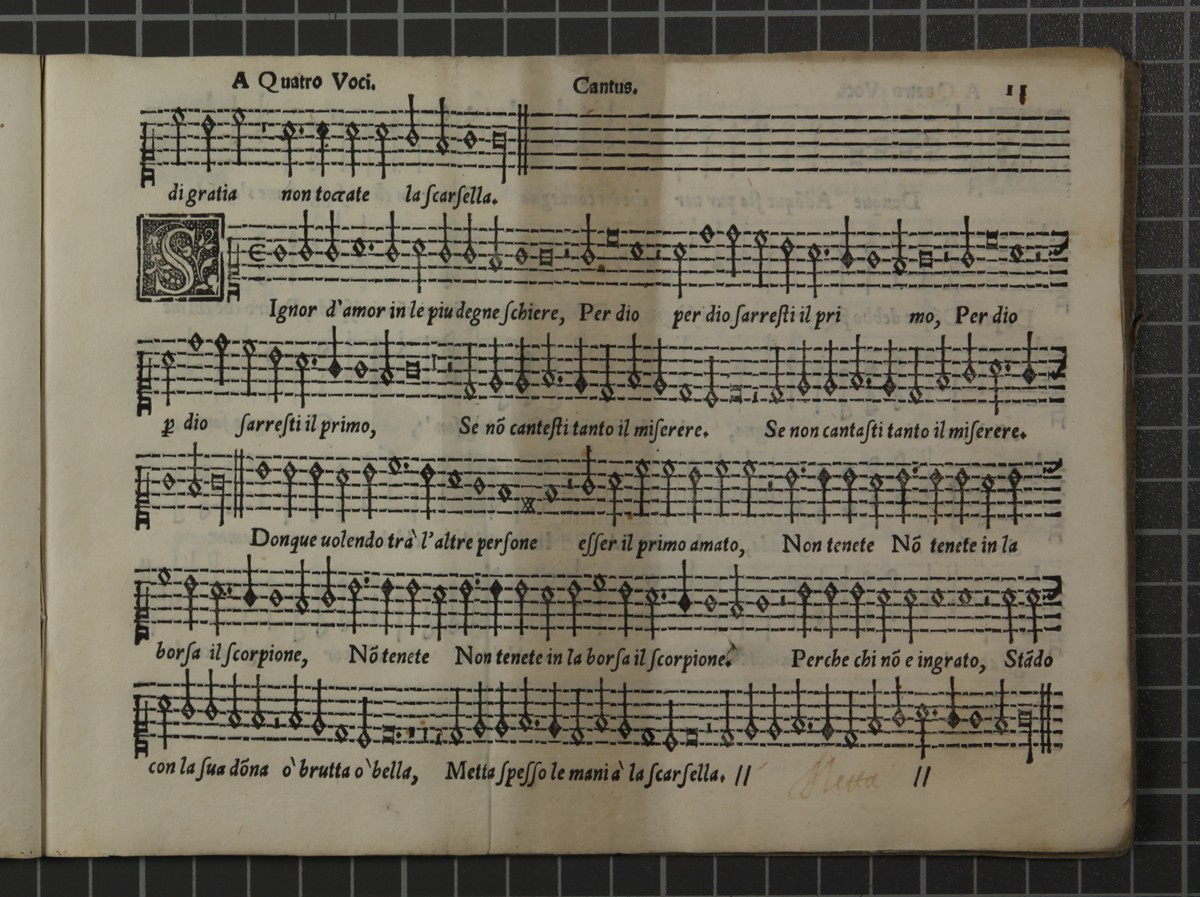 A Quatro Voci. Cantus. 11
di gratia non toccate la ſcarſella.
S Ignor d'amor in le piu degne ſchiere, Per dio per dio ſarreſti il pri mo, Per dio
ꝑ dio ſarreſti il primo, Se nō canteſti tanto il miſerere. Se non cantaſti tanto il miſerere.
Donque uolendo tra` l'altre perſone eſſer il primo amato, Non tenete Nō tenete in la
borſa il ſcorpione, Nō tenete Non tenete in la borſa il ſcorpione. Perche chi nō e ingrato, Stādo
con la ſua dōna o` brutta o` bella, Metta ſpeſſo le mani a` la ſcarſella. // Metta //